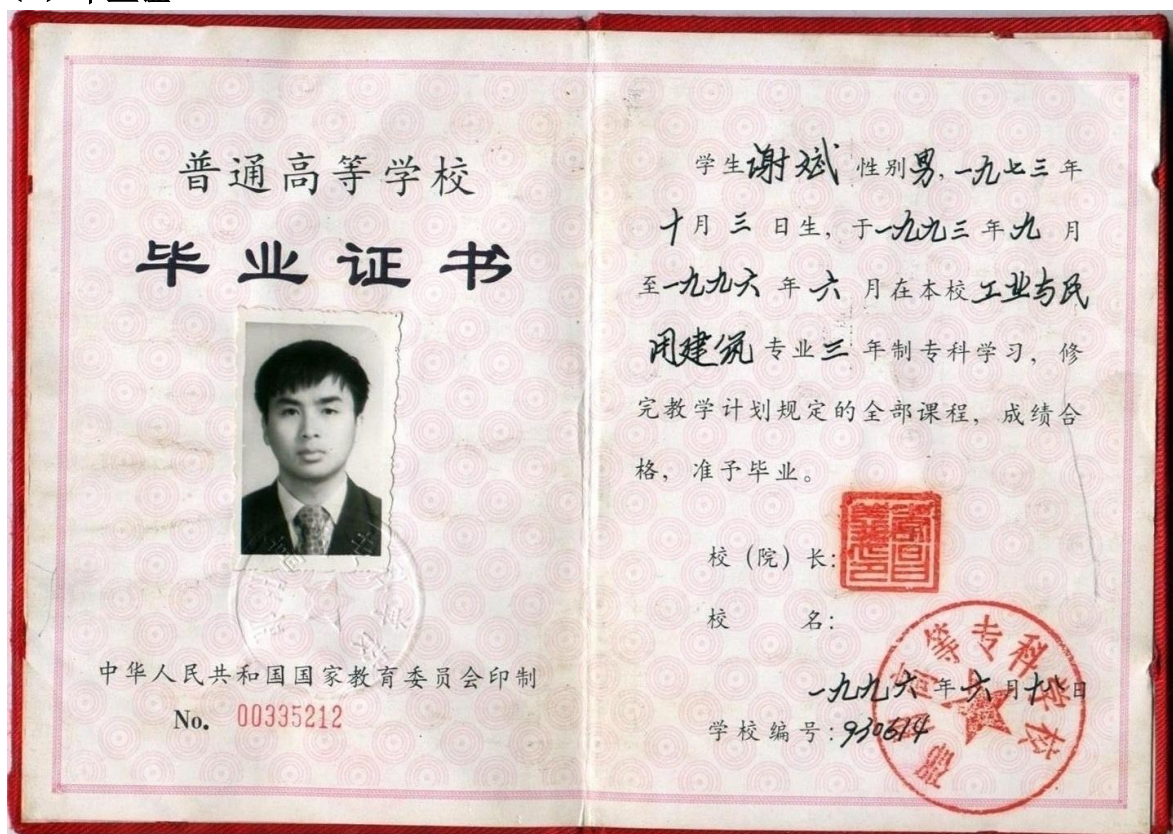 普通高等学校
毕业证书
中华人民共和国国家教育委员会印制
No. 00335212
学生谢斌 性别男,一九七三年
十月三日生,于一九九三年九月
至一九九六年六月在本校工业与民
用建筑专业三年制专科学习,修
完教学计划规定的全部课程,成绩合
格,准予毕业。
校(院)长:
校 名:
高等专科学校
一九九六年六月十 日
学校编号:930614